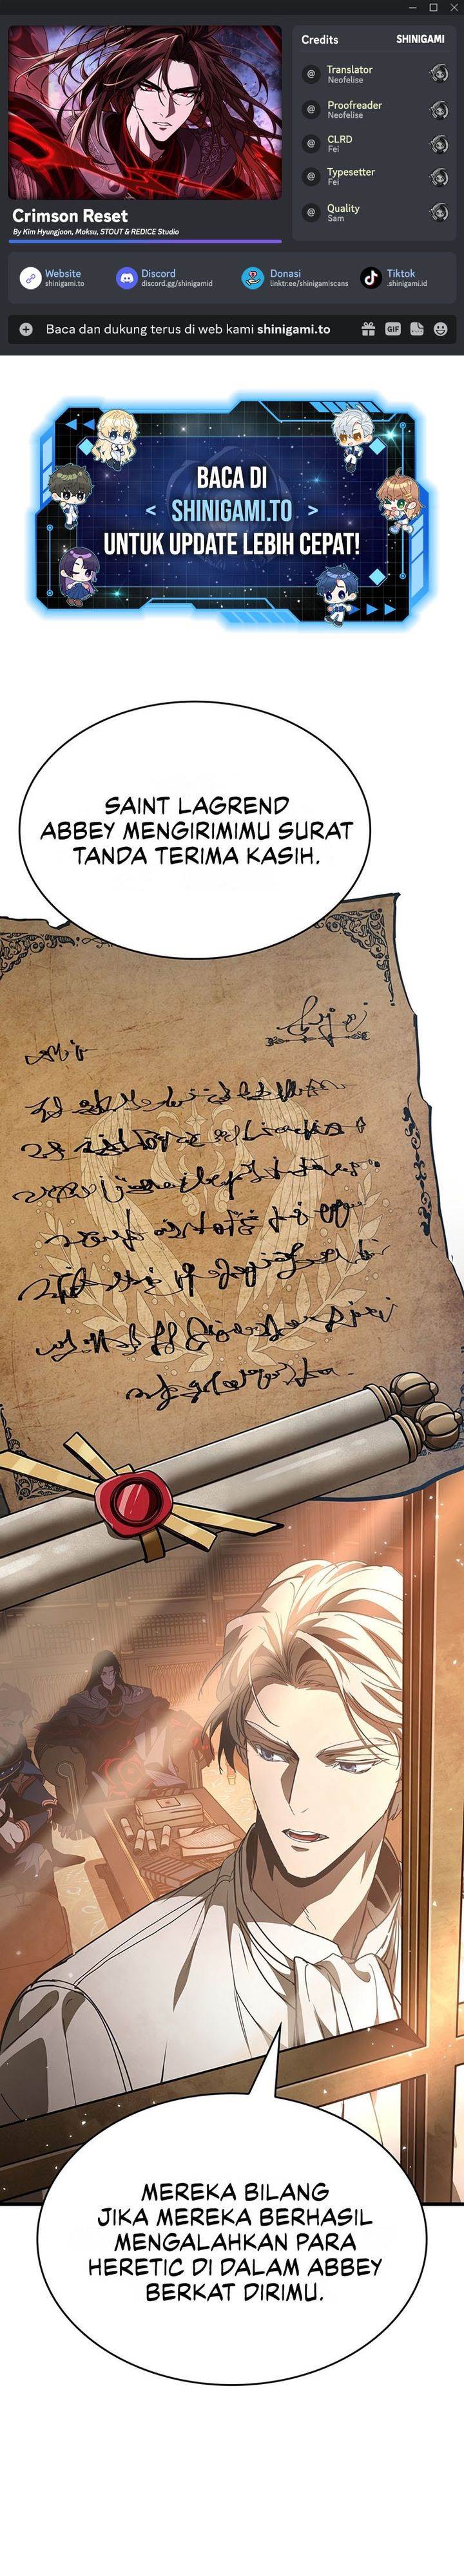 Credits
SHINIGAMI
@ Translator
Neofelise
@ Proofreader
Neofelise
@ CLRD
Fei
@ Typesetter
Fei
@ Quality
Sam
Crimson Reset
By Kim Hyungjoon, Moksu, STOUT & REDICE Studio
Website
shinigami.to
Discord
discord.gg/shinigamid
Donasi
linktr.ee/shinigamiscans
Tiktok
.shinigami.id
Baca dan dukung terus di web kami shinigami.to
GIF
BACA DI
< SHINIGAMI.TO >
UNTUK UPDATE LEBIH CEPAT!
SAINT LAGREND
ABBEY MENGIRIMIMU SURAT
TANDA TERIMA KASIH.
MEREKA BILANG
JIKA MEREKA BERHASIL
MENGALAHKAN PARA
HERETIC DI DALAM ABBEY
BERKAT DIRIMU.